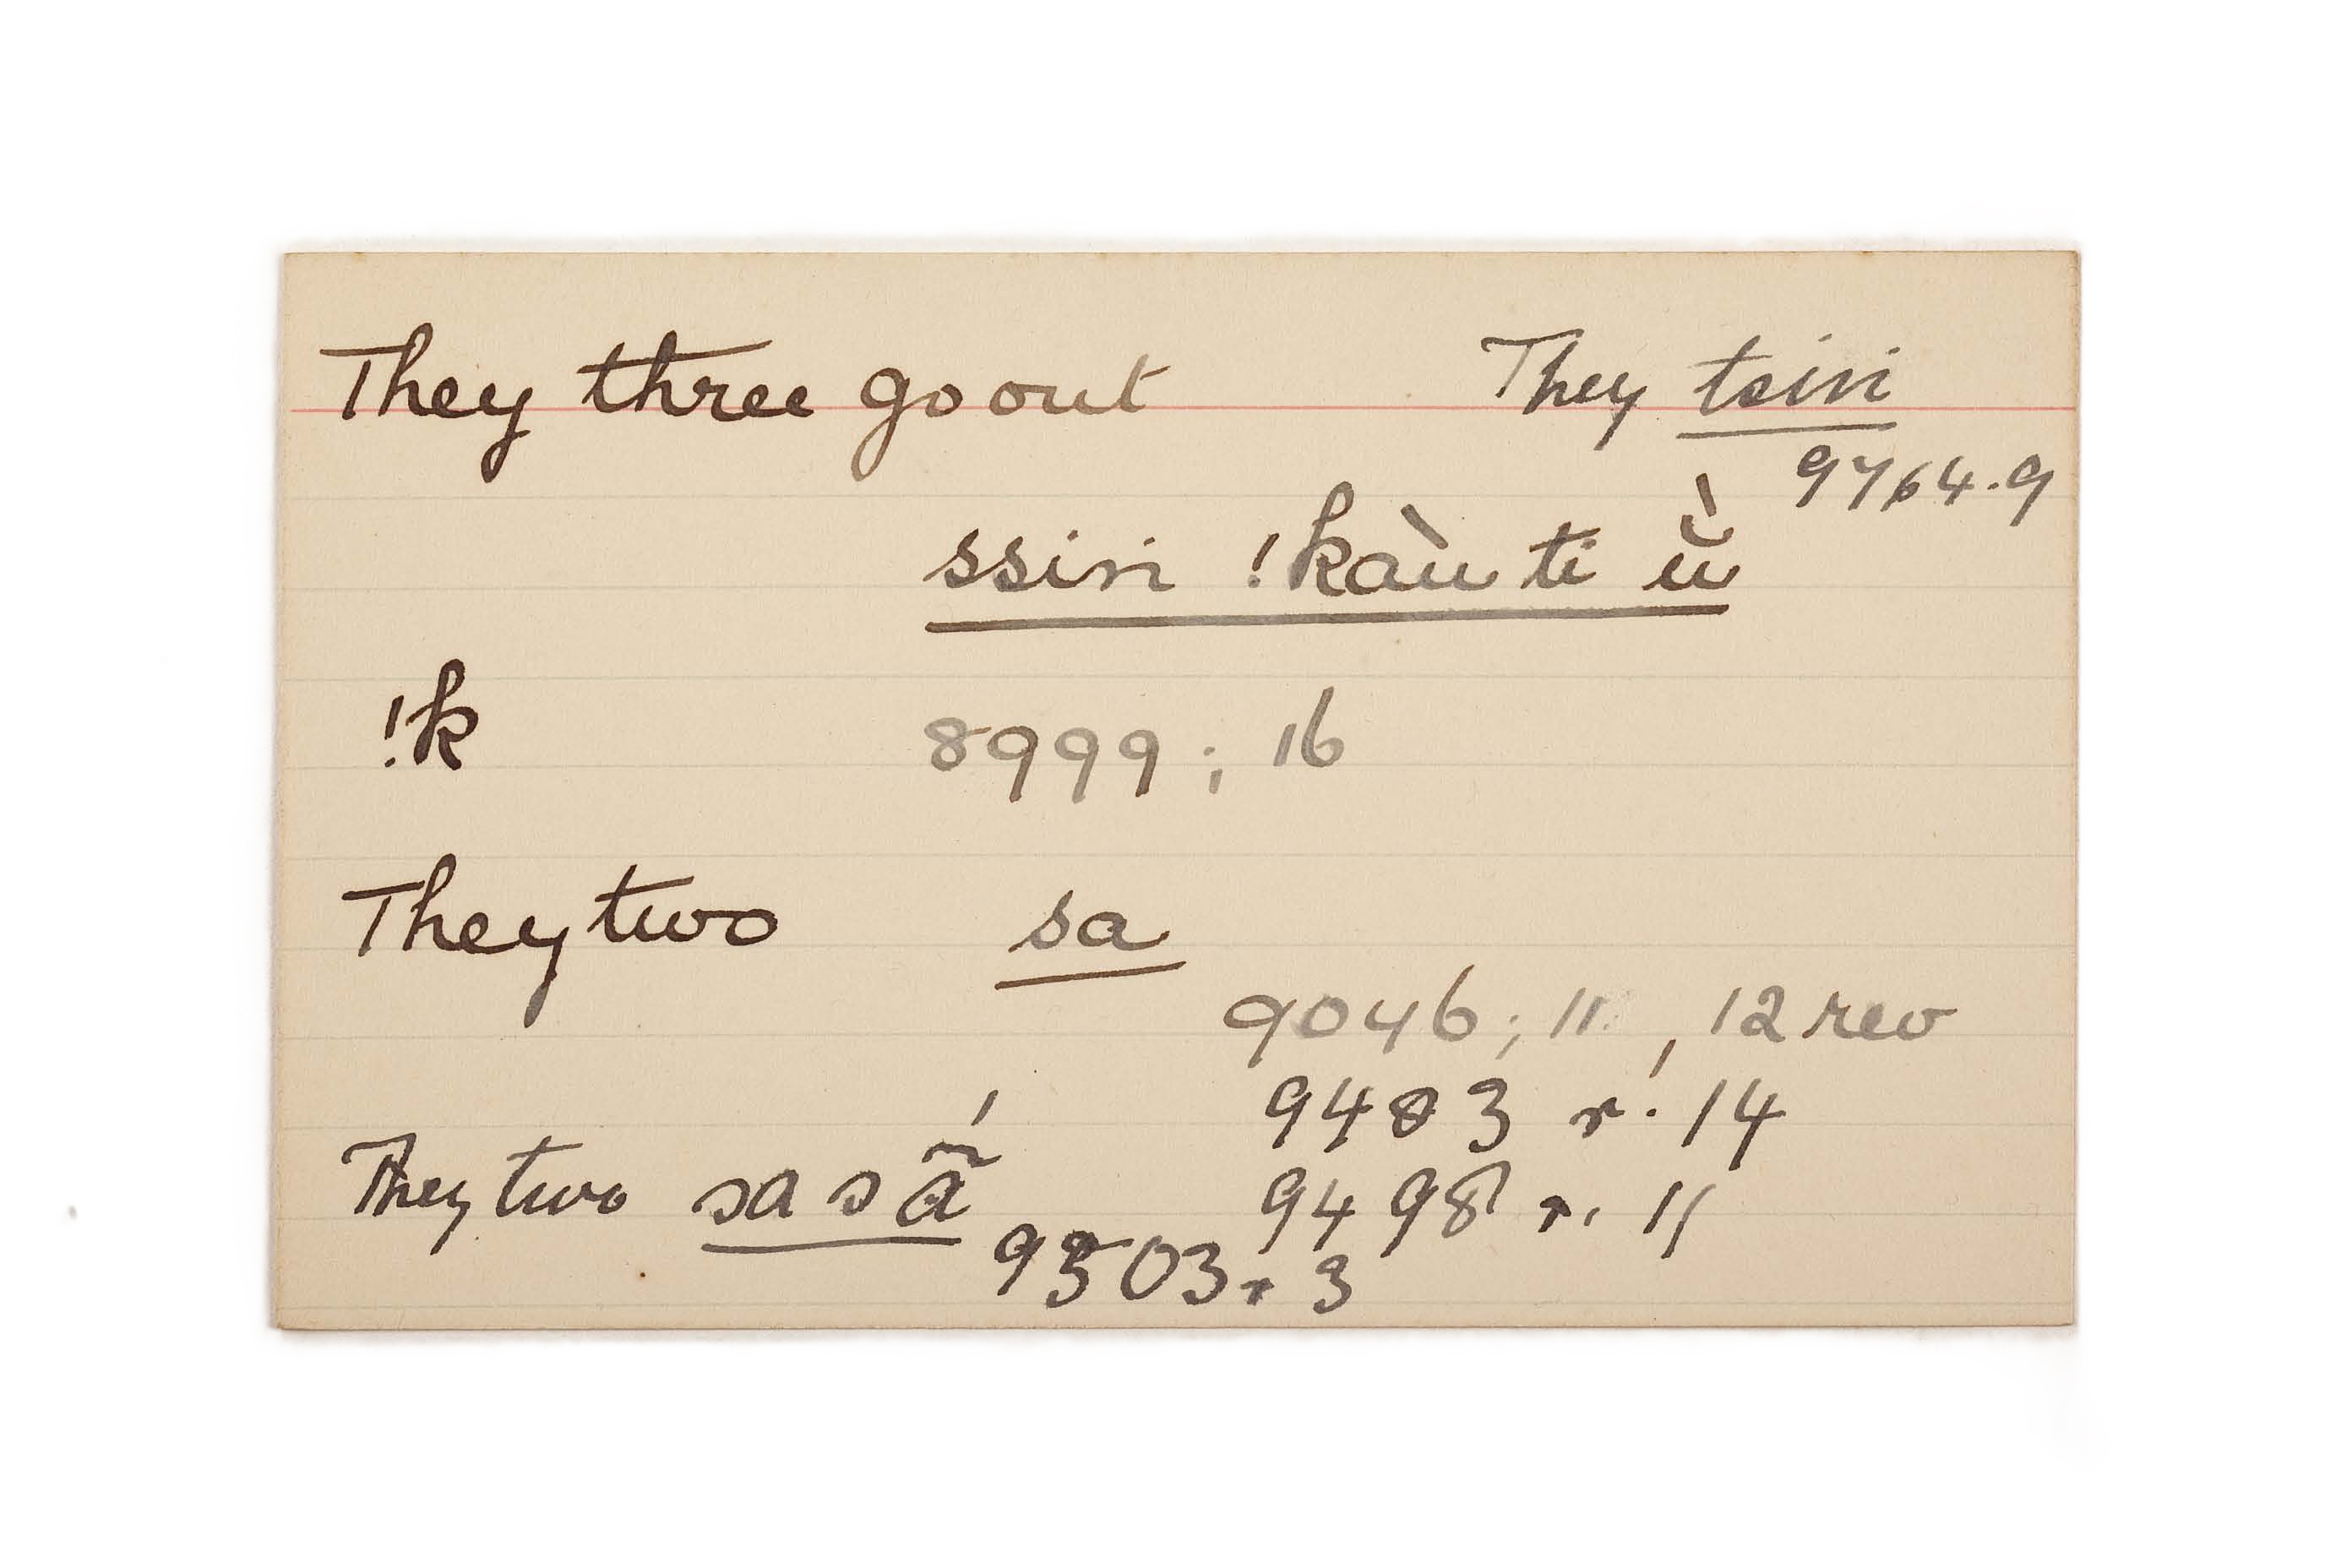 They three go out They tsiri
9764.9
ssiri !kàu ti ŭ̀
!k 8999; 16
They two sa
9046; 11, 12 rev
9483 r. 14
They two sa sã́ 9498 r. 11
9503 r 3